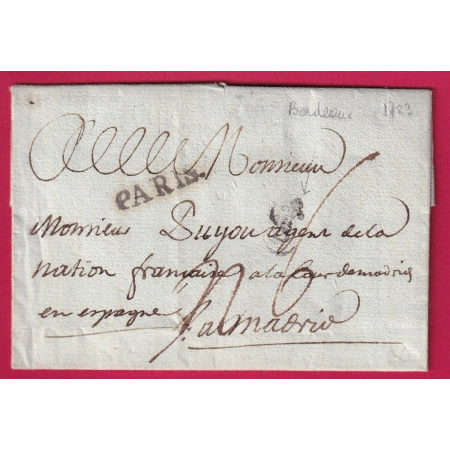 Bordeaux 1783
A Monsieur
PARIS.
Monsieur Puyou agent de la
nation française a la Cour de madrid
en espagne
a madrid